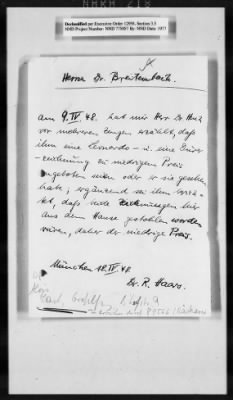 Declassified per Executive Order 12958, Section 3.5
NND Project Number: NND 775057 By: NND Date: 1977
Herrn Dr. Breitenbach.
am 9. IV. 48. hat mir Herr Dr.
vor mehreren Zeugen erzählt, daß
ihm eine Leonardo - u. eine Dürer
- zeichnung zu niedrigem Preis
angeboten seien oder er sie gesehen
habe, ergänzend
daß viele Zeichnungen hier
aus dem Hause gestohlen worden
wären, daher der niedrige Preis.
München 18. IV. 48.
Dr. R. Haars.